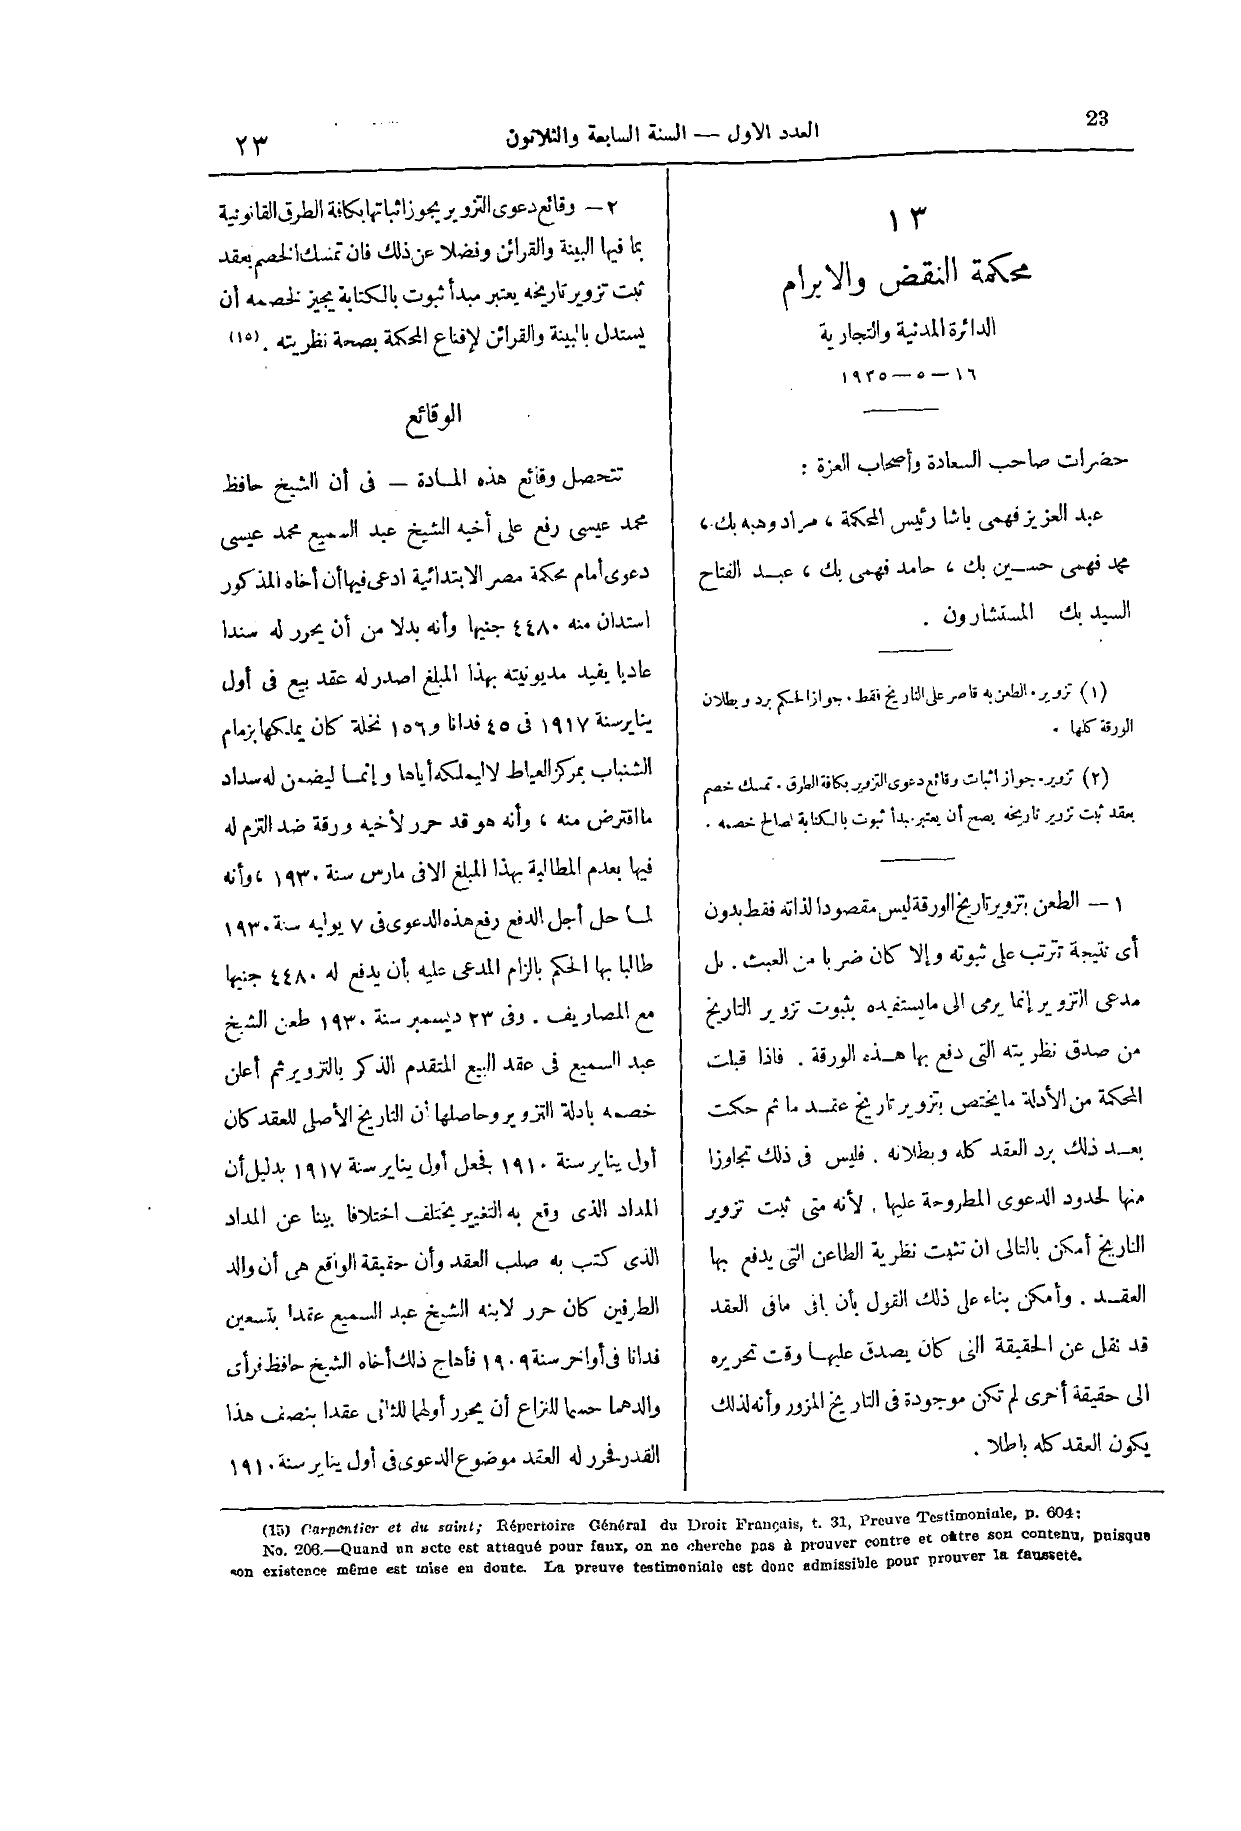 23
العدد الاول — السنة السابعة والثلاثون
٢٣
١٣
محكمة النقض والابرام
الدائرة المدنية والتجارية
١٦ — ٥ — ١٩٣٥
حضرات صاحب السعادة وأصحاب العزة :
عبد العزيز فهمى باشا رئيس المحكمة ، مراد وهبه بك ،
محمد فهمى حسين بك ، حامد فهمى بك ، عبد الفتاح
السيد بك المستشارون .
(١) تزوير . الطعن به قاصر على التاريخ فقط . جواز الحكم برد وبطلان
الورقة كلها .
(٢) تزوير . جواز اثبات وقائع دعوى التزوير بكافة الطرق . تمسك خصم
بعقد ثبت تزوير تاريخه يصح أن يعتبر مبدأ ثبوت بالكتابة لصالح خصمه .
١ — الطعن بتزوير تاريخ الورقة ليس مقصودا لذاته فقط بدون
أى نتيجة تترتب على ثبوته وإلا كان ضربا من العبث . بل
مدعى التزوير إنما يرمى الى مايستفيده بثبوت تزوير التاريخ
من صدق نظريته التى دفع بها هذه الورقة . فاذا قبلت
المحكمة من الأدلة مايختص بتزوير تاريخ عقد ما ثم حكمت
بعد ذلك برد العقد كله وبطلانه . فليس فى ذلك تجاوزا
منها لحدود الدعوى المطروحة عليها . لأنه متى ثبت تزوير
التاريخ أمكن بالتالى ان تثبت نظرية الطاعن التى يدفع بها
العقد . وأمكن بناء على ذلك القول بأن باقى مافى العقد
قد نقل عن الحقيقة التى كان يصدق عليها وقت تحريره
الى حقيقة أخرى لم تكن موجودة فى التاريخ المزور وأنه لذلك
يكون العقد كله باطلا .
٢ — وقائع دعوى التزوير يجوز اثباتها بكافة الطرق القانونية
بما فيها البينة والقرائن وفضلا عن ذلك فان تمسك الخصم بعقد
ثبت تزوير تاريخه يعتبر مبدأ ثبوت بالكتابة يجيز لخصمه أن
يستدل بالبينة والقرائن لإقناع المحكمة بصحة نظريته . (١٥)
الوقائع
تتحصل وقائع هذه المادة — فى أن الشيخ حافظ
محمد عيسى رفع على أخيه الشيخ عبد السميع محمد عيسى
دعوى أمام محكمة مصر الابتدائية ادعى فيها أن أخاه المذكور
استدان منه ٤٤٨٠ جنيها وأنه بدلا من أن يحرر له سندا
عاديا يفيد مديونيته بهذا المبلغ اصدر له عقد بيع فى أول
يناير سنة ١٩١٧ فى ٤٥ فدانا و ١٥٦ نخلة كان يملكها بزمام
الشنباب بمركز العياط لا ليملكه أياها وإنما ليضمن له سداد
ما اقترض منه ، وأنه هو قد حرر لأخيه ورقة ضد التزم له
فيها بعدم المطالبة بهذا المبلغ الا فى مارس سنة ١٩٣٠ ، وأنه
لما حل أجل الدفع رفع هذه الدعوى فى ٧ يوليه سنة ١٩٣٠
طالبا بها الحكم بالزام المدعى عليه بأن يدفع له ٤٤٨٠ جنيها
مع المصاريف . وفى ٢٣ ديسمبر سنة ١٩٣٠ طعن الشيخ
عبد السميع فى عقد البيع المتقدم الذكر بالتزوير ثم أعلن
خصمه بادلة التزوير وحاصلها أن التاريخ الأصلى للعقد كان
أول يناير سنة ١٩١٠ فجعل أول يناير سنة ١٩١٧ بدليل أن
المداد الذى وقع به التغيير يختلف اختلافا بينا عن المداد
الذى كتب به صلب العقد وأن حقيقة الواقع هى أن والد
الطرفين كان حرر لابنه الشيخ عبد السميع عقدا بتسعين
فدانا فى أواخر سنة ١٩٠٩ فأهاج ذلك أخاه الشيخ حافظ فرأى
والدهما حسما للنزاع أن يحرر أولهما للثانى عقدا بنصف هذا
القدر فحرر له العقد موضوع الدعوى فى أول يناير سنة ١٩١٠
(15) Carpentier et du saint; Répertoire Général du Droit Français, t. 31, Preuve Testimoniale, p. 604:
No. 206.—Quand un acte est attaqué pour faux, on ne cherche pas à prouver contre et oûtre son contenu, puisque
son existence même est mise en doute. La preuve testimoniale est donc admissible pour prouver la fausseté.